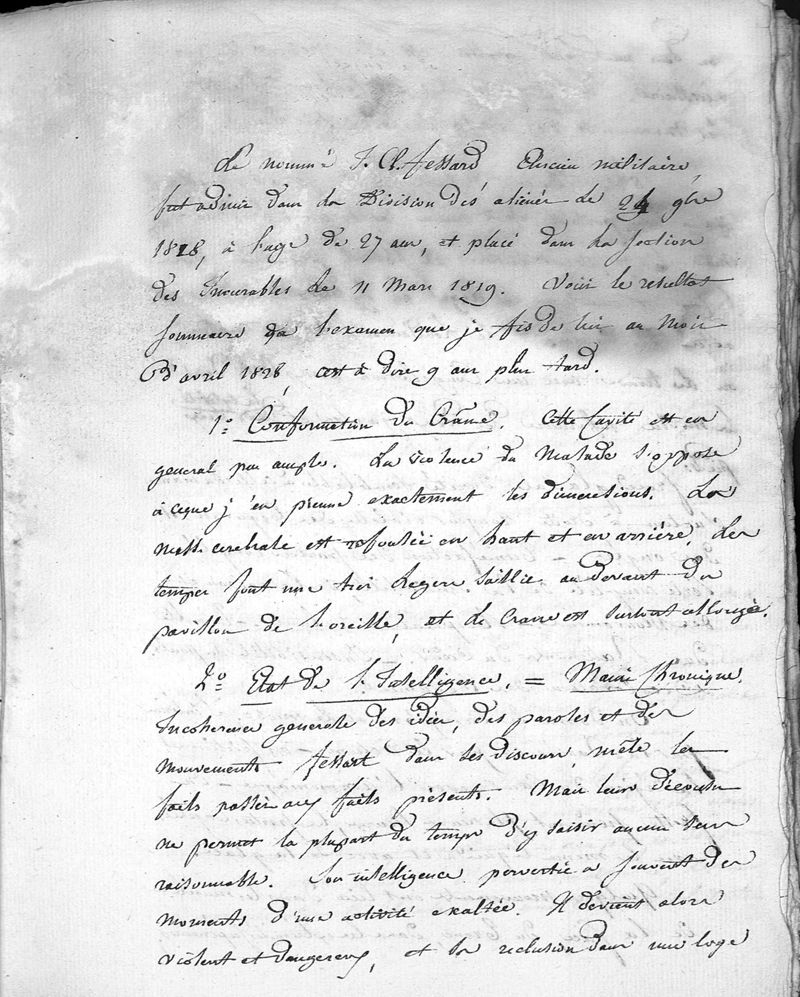 Le nommé J. Cl. fessard Ancien militaire,
fut admis dans la Division des aliénés le 24 9bre
1818, à l'age de 27 ans, et placé dans la section
des Incurables le 11 Mars 1819. Voici le resultat
sommaire de l'examen que je fis de lui au Mois
D'avril 1828, cest à dire 9 ans plus tard.
1.° Conformation du Crâne. Cette Cavité est en
general peu ample. La violence du Malade s'oppose
à ceque j'en prenne exactement les dimensions. La
masse cerebrale est refoulée en haut et en arrière. Les
tempes font une très legere saillie au devant du
pavillon de l'oreille, et le Crane est surtout allongée.
2.° Etat de l'Intelligence. = Manie Chronique.
Incoherence generale des idées, des paroles et des
mouvements fessart dans ses discours, mêle les
faits passés aux faits présents. Mais leur décousu
ne permet la plupart du temps d'y saisir aucun sens
raisonnable. Son intelligence pervertie a souvent des
moments d'une activité exaltée. Il devient alors
violent et dangereux, et la reclusion dans une loge